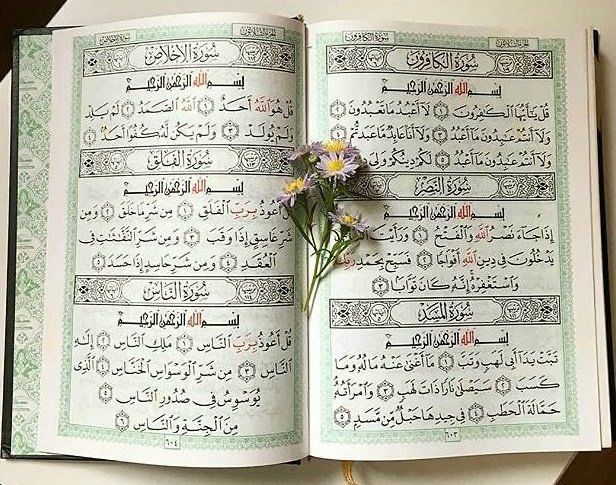 الجزء الثلاثون
سورة الكافرون
سُورَةُ الكَافِرُونَ
بِسْمِ اللَّهِ الرَّحْمَٰنِ الرَّحِيمِ
قُلْ يَٰٓأَيُّهَا ٱلْكَٰفِرُونَ ١ لَآ أَعْبُدُ مَا تَعْبُدُونَ ٢
وَلَآ أَنتُمْ عَٰبِدُونَ مَآ أَعْبُدُ ٣ وَلَآ أَنَا۠ عَابِدٌ مَّا عَبَدتُّمْ ٤
وَلَآ أَنتُمْ عَٰبِدُونَ مَآ أَعْبُدُ ٥ لَكُمْ دِينُكُمْ وَلِىَ
سُورَةُ النَّصْرِ
بِسْمِ اللَّهِ الرَّحْمَٰنِ الرَّحِيمِ
إِذَا جَآءَ نَصْرُ ٱللَّهِ وَٱلْفَتْحُ ١ وَرَأَيْتَ
يَدْخُلُونَ فِى دِينِ ٱللَّهِ أَفْوَاجًا ٢ فَسَبِّحْ بِحَمْدِ رَبِّكَ
وَٱسْتَغْفِرْهُ إِنَّهُۥ كَانَ تَوَّابًۢا ٣
سُورَةُ المَسَدِ
بِسْمِ اللَّهِ الرَّحْمَٰنِ الرَّحِيمِ
تَبَّتْ يَدَآ أَبِى لَهَبٍ وَتَبَّ ١ مَآ أَغْنَىٰ عَنْهُ مَالُهُۥ وَمَا
كَسَبَ ٢ سَيَصْلَىٰ نَارًا ذَاتَ لَهَبٍ ٣ وَٱمْرَأَتُهُۥ
حَمَّالَةَ ٱلْحَطَبِ ٤ فِى جِيدِهَا حَبْلٌ مِّن مَّسَدٍۭ ٥
٦٠٣
الجزء الثلاثون
سورة الإخلاص
سُورَةُ الإِخْلَاصِ
بِسْمِ اللَّهِ الرَّحْمَٰنِ الرَّحِيمِ
قُلْ هُوَ ٱللَّهُ أَحَدٌ ١ ٱللَّهُ ٱلصَّمَدُ ٢ لَمْ يَلِدْ
وَلَمْ يُولَدْ ٣ وَلَمْ يَكُن لَّهُۥ كُفُوًا أَحَدٌۢ ٤
سُورَةُ الفَلَقِ
بِسْمِ اللَّهِ الرَّحْمَٰنِ الرَّحِيمِ
أَعُوذُ بِرَبِّ ٱلْفَلَقِ ١ مِن شَرِّ مَا خَلَقَ ٢ وَمِن
شَرِّ غَاسِقٍ إِذَا وَقَبَ ٣ وَمِن شَرِّ ٱلنَّفَّٰثَٰتِ فِى
ٱلْعُقَدِ ٤ وَمِن شَرِّ حَاسِدٍ إِذَا حَسَدَ ٥
سُورَةُ النَّاسِ
بِسْمِ اللَّهِ الرَّحْمَٰنِ الرَّحِيمِ
قُلْ أَعُوذُ بِرَبِّ ٱلنَّاسِ ١ مَلِكِ ٱلنَّاسِ ٢ إِلَٰهِ
ٱلنَّاسِ ٣ مِن شَرِّ ٱلْوَسْوَاسِ ٱلْخَنَّاسِ ٤ ٱلَّذِى
يُوَسْوِسُ فِى صُدُورِ ٱلنَّاسِ ٥
مِنَ ٱلْجِنَّةِ وَٱلنَّاسِ ٦
٦٠٤